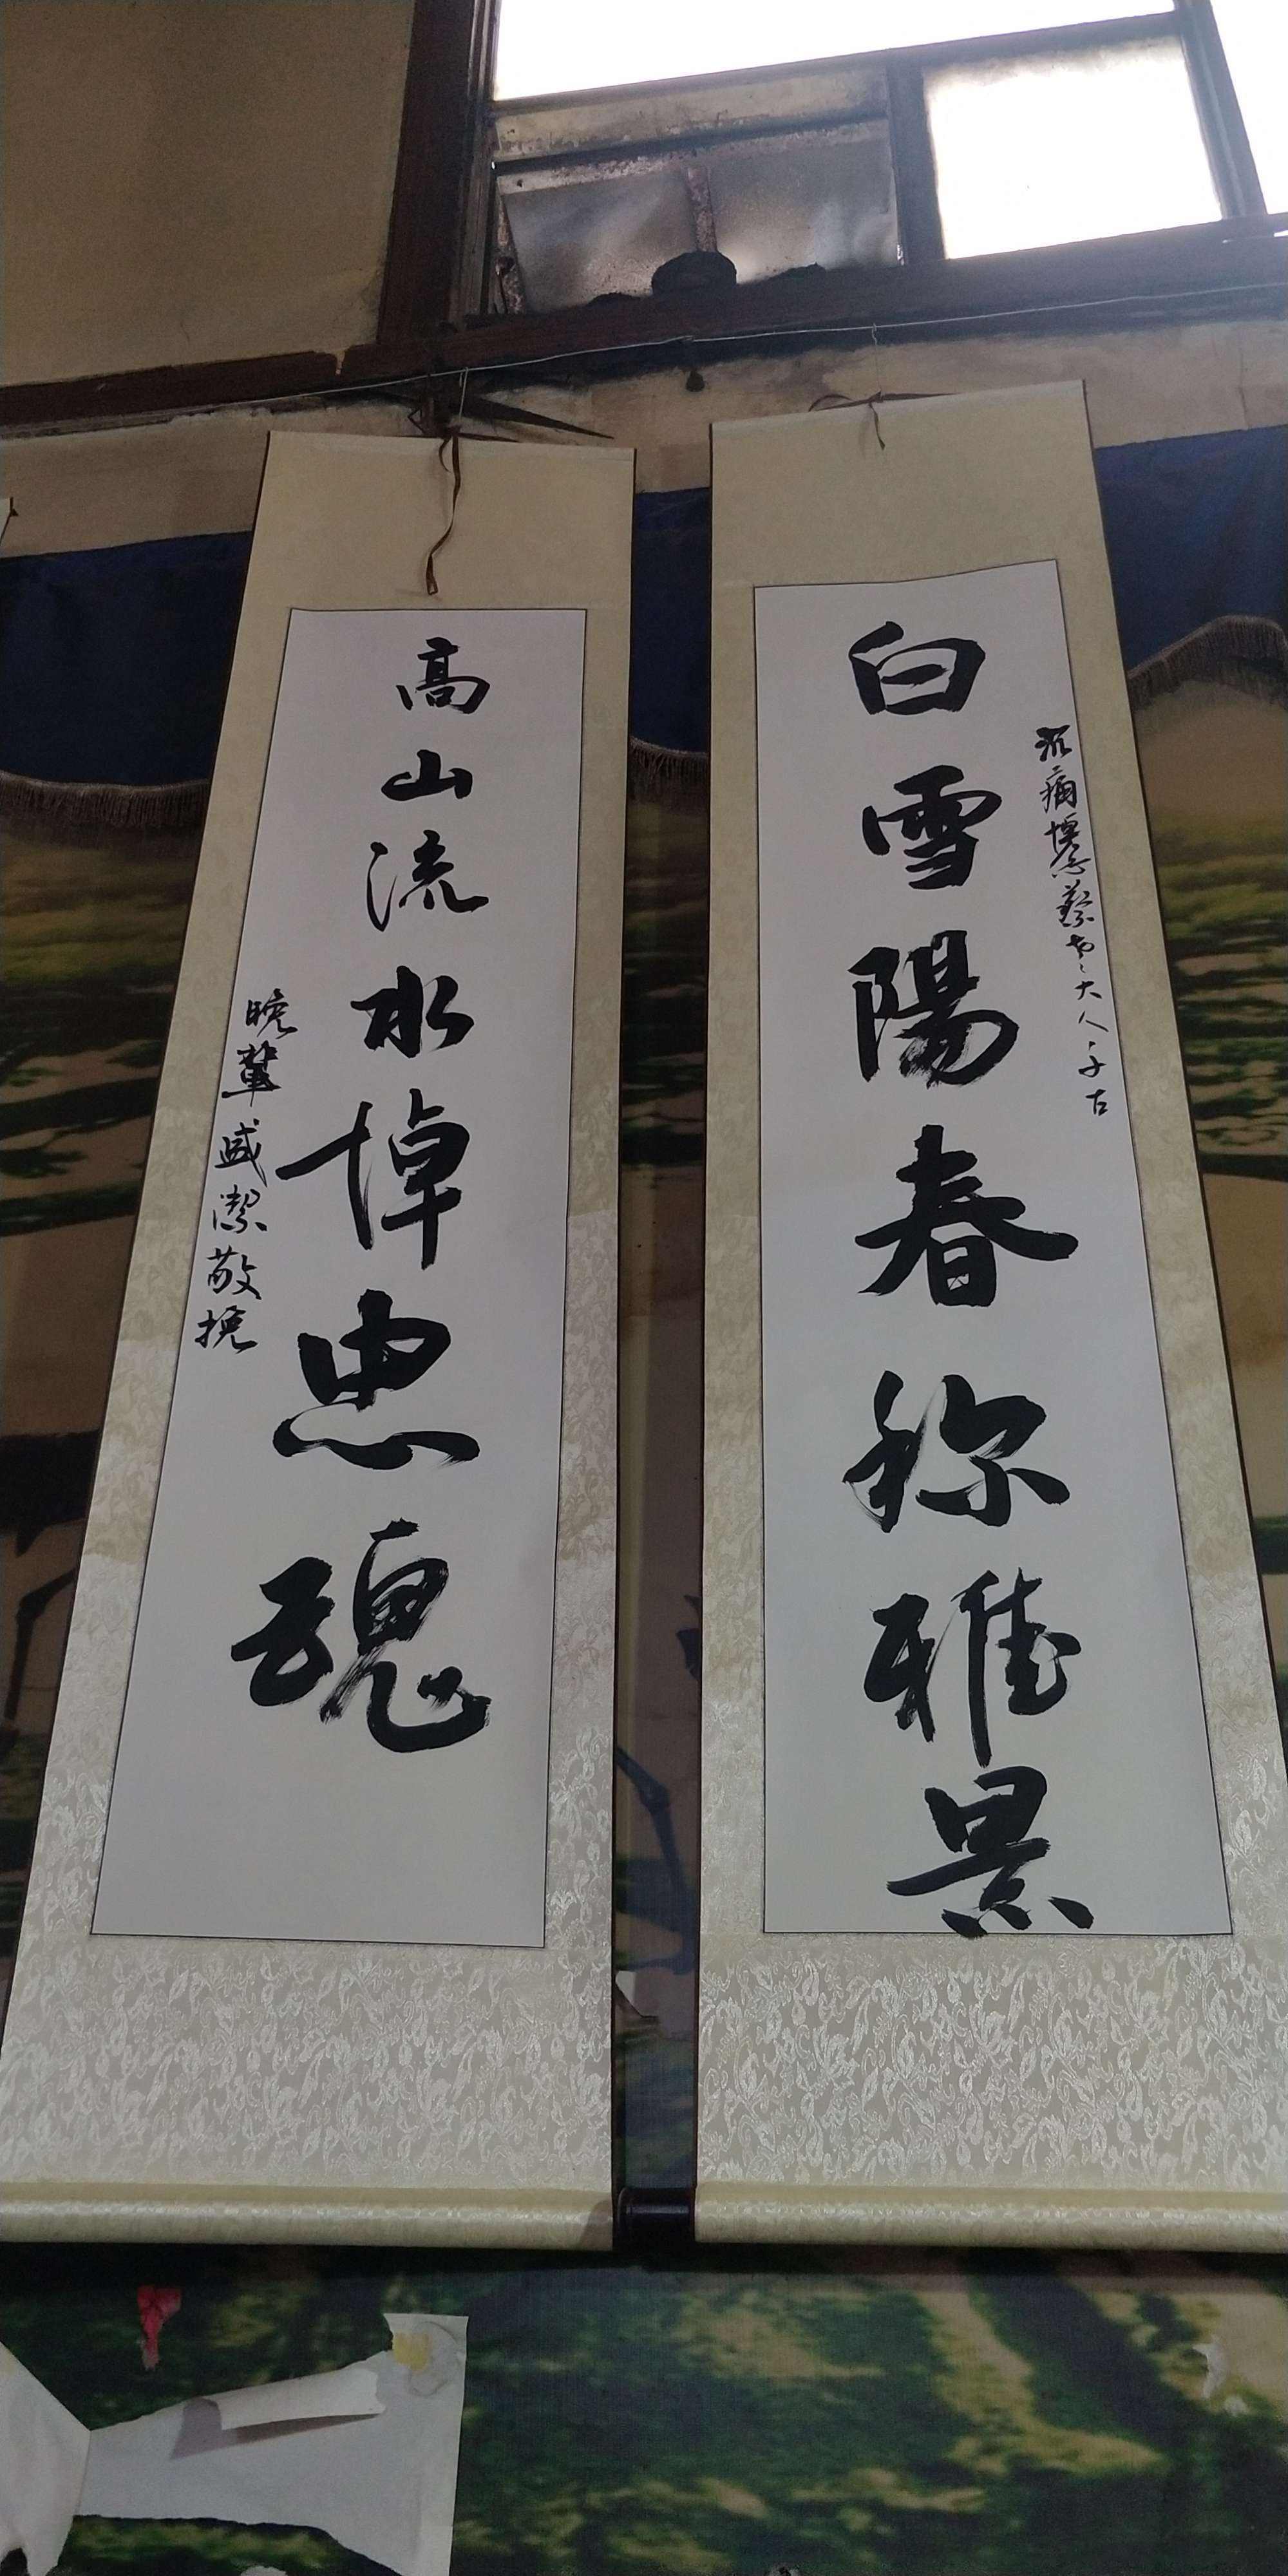 沉痛悼念蔡老老大人千古
白雪陽春称雅景
高山流水悼忠魂
晚輩盛潔敬挽